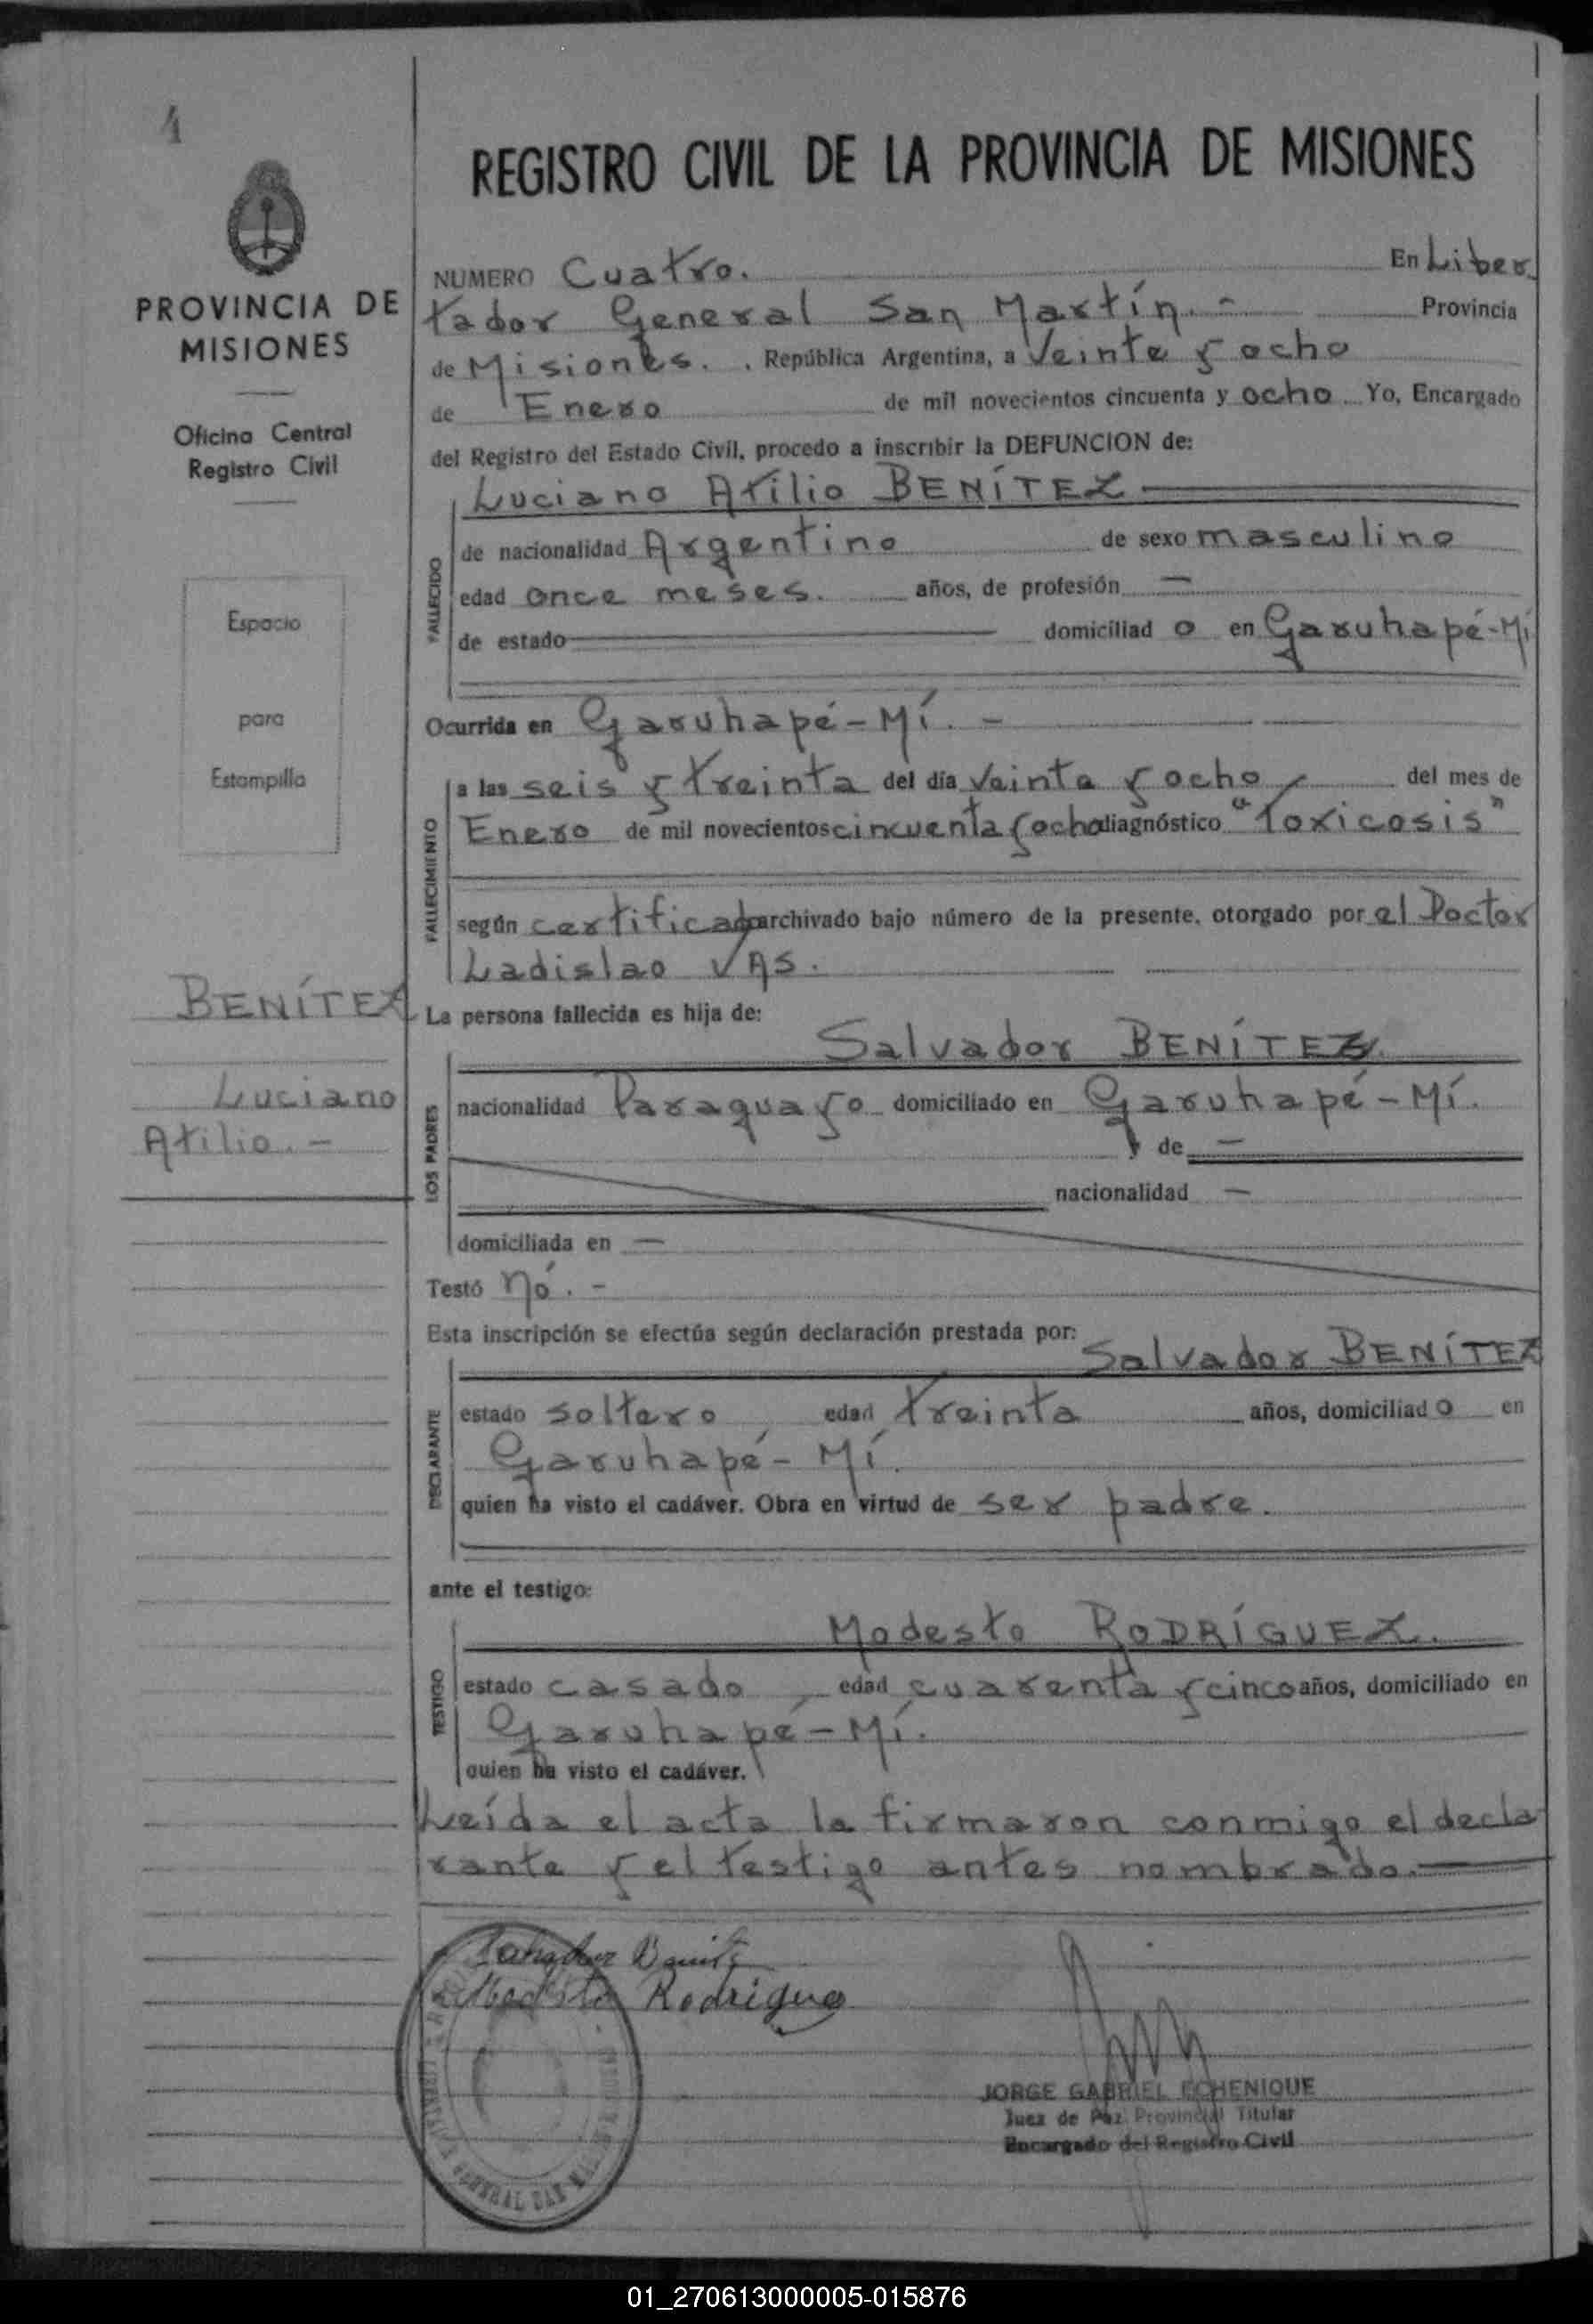 4
REGISTRO CIVIL DE LA PROVINCIA DE MISIONES
PROVINCIA DE
MISIONES
Oficina Central
Registro Civil
Espacio
para
Estampilla
BENÍTEZ
Luciano
Atilio. -
NUMERO Cuatro. En Liber
tador General San Martín. - Provincia
de Misiones. . República Argentina, a Veinte y ocho
de Enero de mil novecientos cincuenta y ocho Yo, Encargado
del Registro del Estado Civil, procedo a inscribir la DEFUNCION de:
Luciano Atilio BENÍTEZ
FALLECIDO
de nacionalidad Argentino de sexo masculino
edad once meses. años, de profesión —
de estado domiciliad o en Garuhapé-Mí
Ocurrida en Garuhapé-Mí. -
FALLECIMIENTO
a las seis y treinta del día Veinte y ocho del mes de
Enero de mil novecientos cincuenta y ocho diagnóstico "Toxicosis"
según certificado archivado bajo número de la presente, otorgado por el Doctor
Ladislao VAS.
La persona fallecida es hija de:
Salvador BENÍTEZ.
LOS PADRES
nacionalidad Paraguayo domiciliado en Garuhapé-Mí.
y de —
nacionalidad —
domiciliada en —
Testó nó. -
Esta inscripción se efectúa según declaración prestada por:
Salvador BENÍTEZ
DECLARANTE
estado soltero edad treinta años, domiciliad o en
Garuhapé-Mí.
quien ha visto el cadáver. Obra en virtud de ser padre.
ante el testigo:
Modesto RODRÍGUEZ.
TESTIGO
estado casado, edad cuarenta y cinco años, domiciliado en
Garuhapé-Mí.
quien ha visto el cadáver.
Leída el acta la firmaron conmigo el decla-
rante y el testigo antes nombrado.
Salvador Benitez
Modesto Rodriguez
JORGE GABRIEL ECHENIQUE
Juez de Paz Provincial Titular
Encargado del Registro Civil
GENERAL SAN
01_270613000005-015876